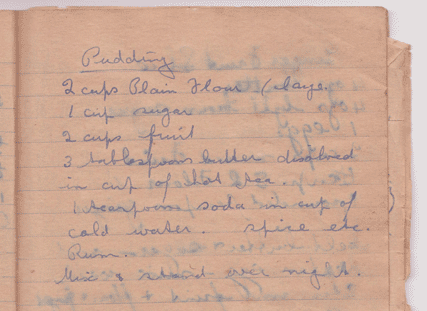 Pudding
2 cups Plain Flour (large
1 cup sugar
2 cups fruit
3 tablespoons butter disolved
in cup of hot tea.
1 teaspoon soda in cup of
cold water. spice etc.
Rum.
Mix & stand over night.